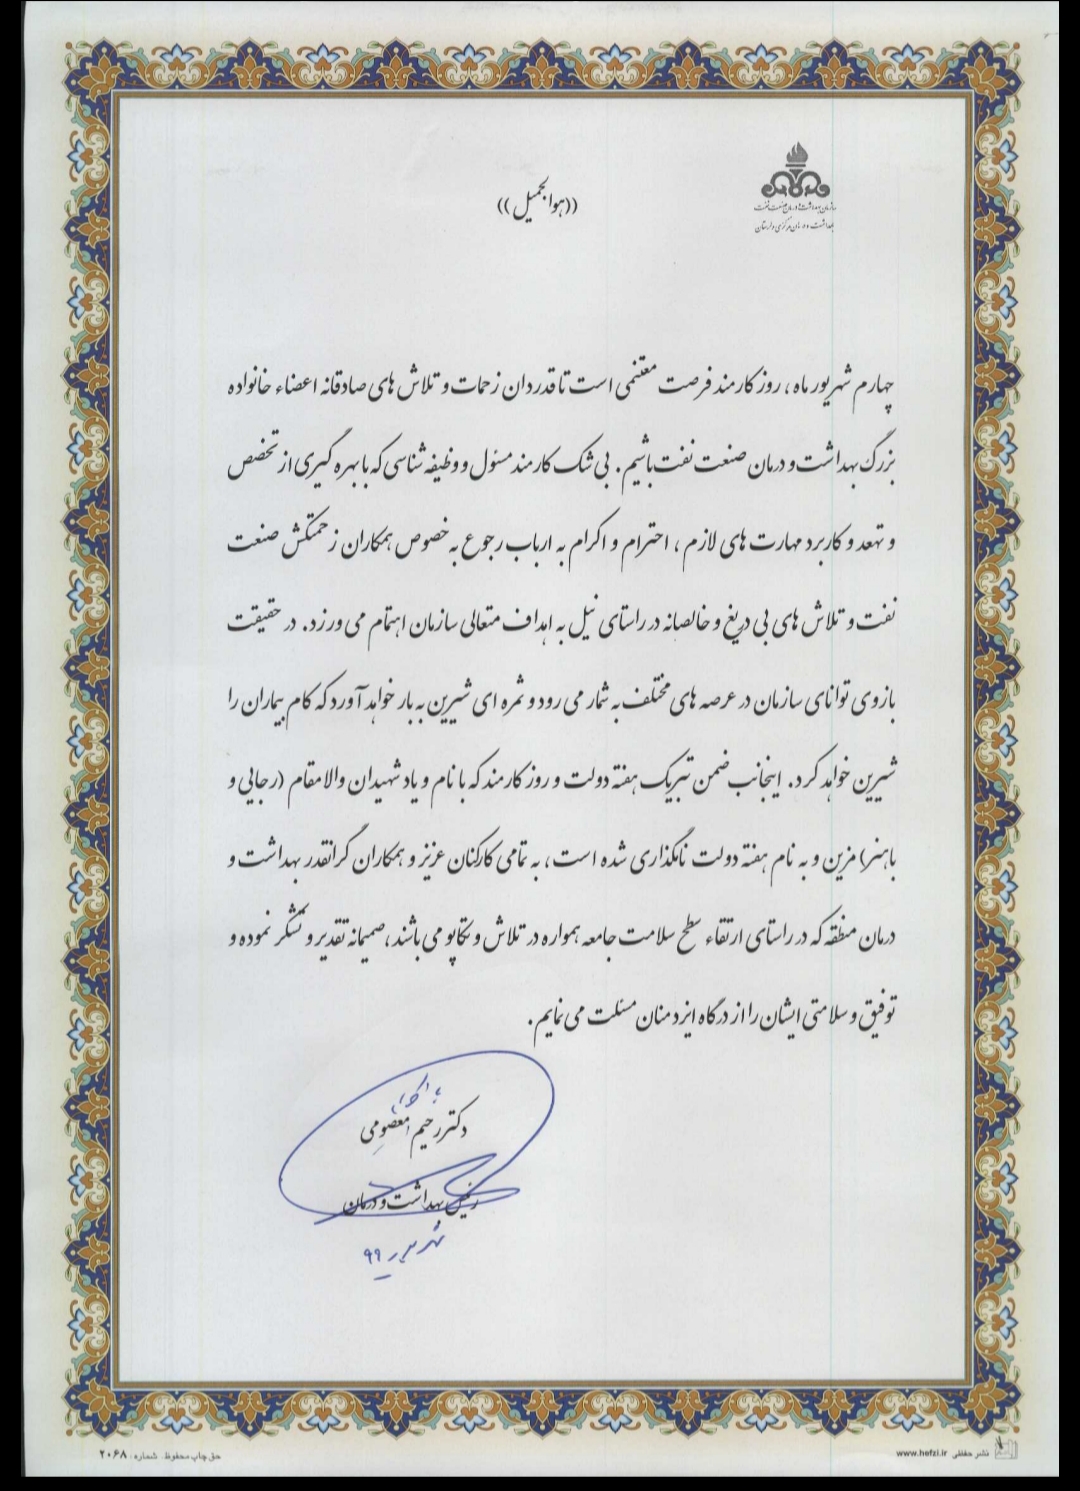 سازمان بهداشت و درمان صنعت نفت
بهداشت و درمان مرکزی و لرستان
((هوالجمیل))
چهارم شهریور ماه ، روز کارمند فرصت مغتنمی است تا قدردان زحمات و تلاش های صادقانه اعضاء خانواده
بزرگ بهداشت و درمان صنعت نفت باشیم . بی شک کارمند مسئول و وظیفه شناسی که با بهره گیری از تخصص
و تهعد و کاربرد مهارت های لازم ، احترام و اکرام به ارباب رجوع به خصوص همکاران زحمتکش صنعت
نفت و تلاش های بی دریغ و خالصانه در راستای نیل به اهداف متعالی سازمان اهتمام می ورزد . در حقیقت
بازوی توانای سازمان در عرصه های مختلف به شمار می رود و ثمره ای شیرین به بار خواهد آورد که کام بیماران را
شیرین خواهد کرد . اینجانب ضمن تبریک هفته دولت و روز کارمند که با نام و یاد شهیدان والامقام (رجایی و
باهنر) مزین و به نام هفته دولت نامگذاری شده است ، به تمامی کارکنان عزیز و همکاران گرانقدر بهداشت و
درمان منطقه که در راستای ارتقاء سطح سلامت جامعه همواره در تلاش و تکاپو می باشند ، صمیمانه تقدیر و تشکر نموده و
توفیق و سلامتی ایشان را از درگاه ایزد منان مسئلت می نمایم .
دکتر رحیم معصومی
رئیس بهداشت و درمان
شهریور ۹۹
حق چاپ محفوظ . شماره : ۲۰۶۸
www.hefzi.ir نشر حفظی